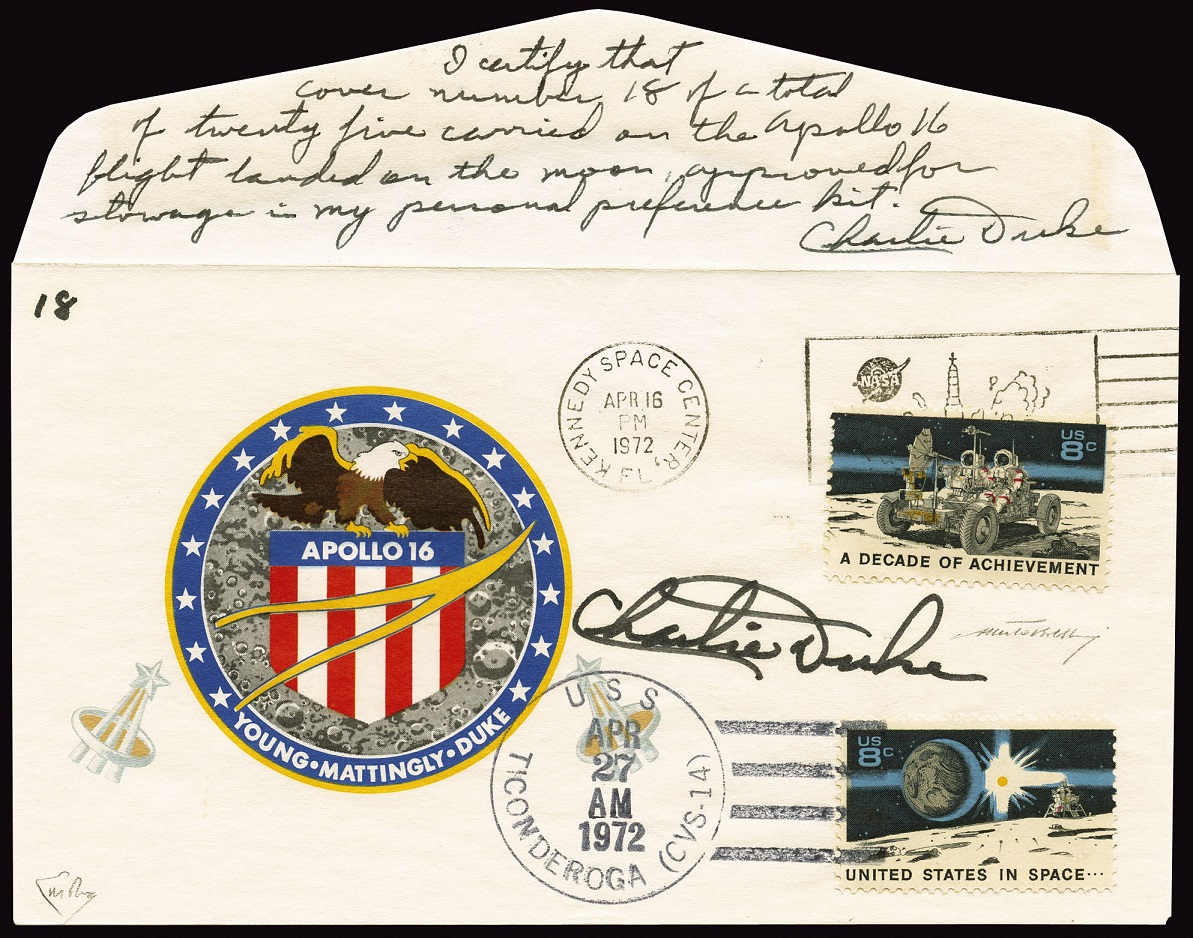 I certify that
cover number 18 of a total
of twenty five carried on the Apollo 16
flight landed on the moon, approved for
stowage in my personal preference kit.
Charlie Duke
18
KENNEDY SPACE CENTER, FL
APR 16
PM
1972
NASA
US 8c
A DECADE OF ACHIEVEMENT
APOLLO 16
YOUNG • MATTINGLY • DUKE
Charlie Duke
USS TICONDEROGA (CVS-14)
APR
27
AM
1972
US 8c
UNITED STATES IN SPACE...